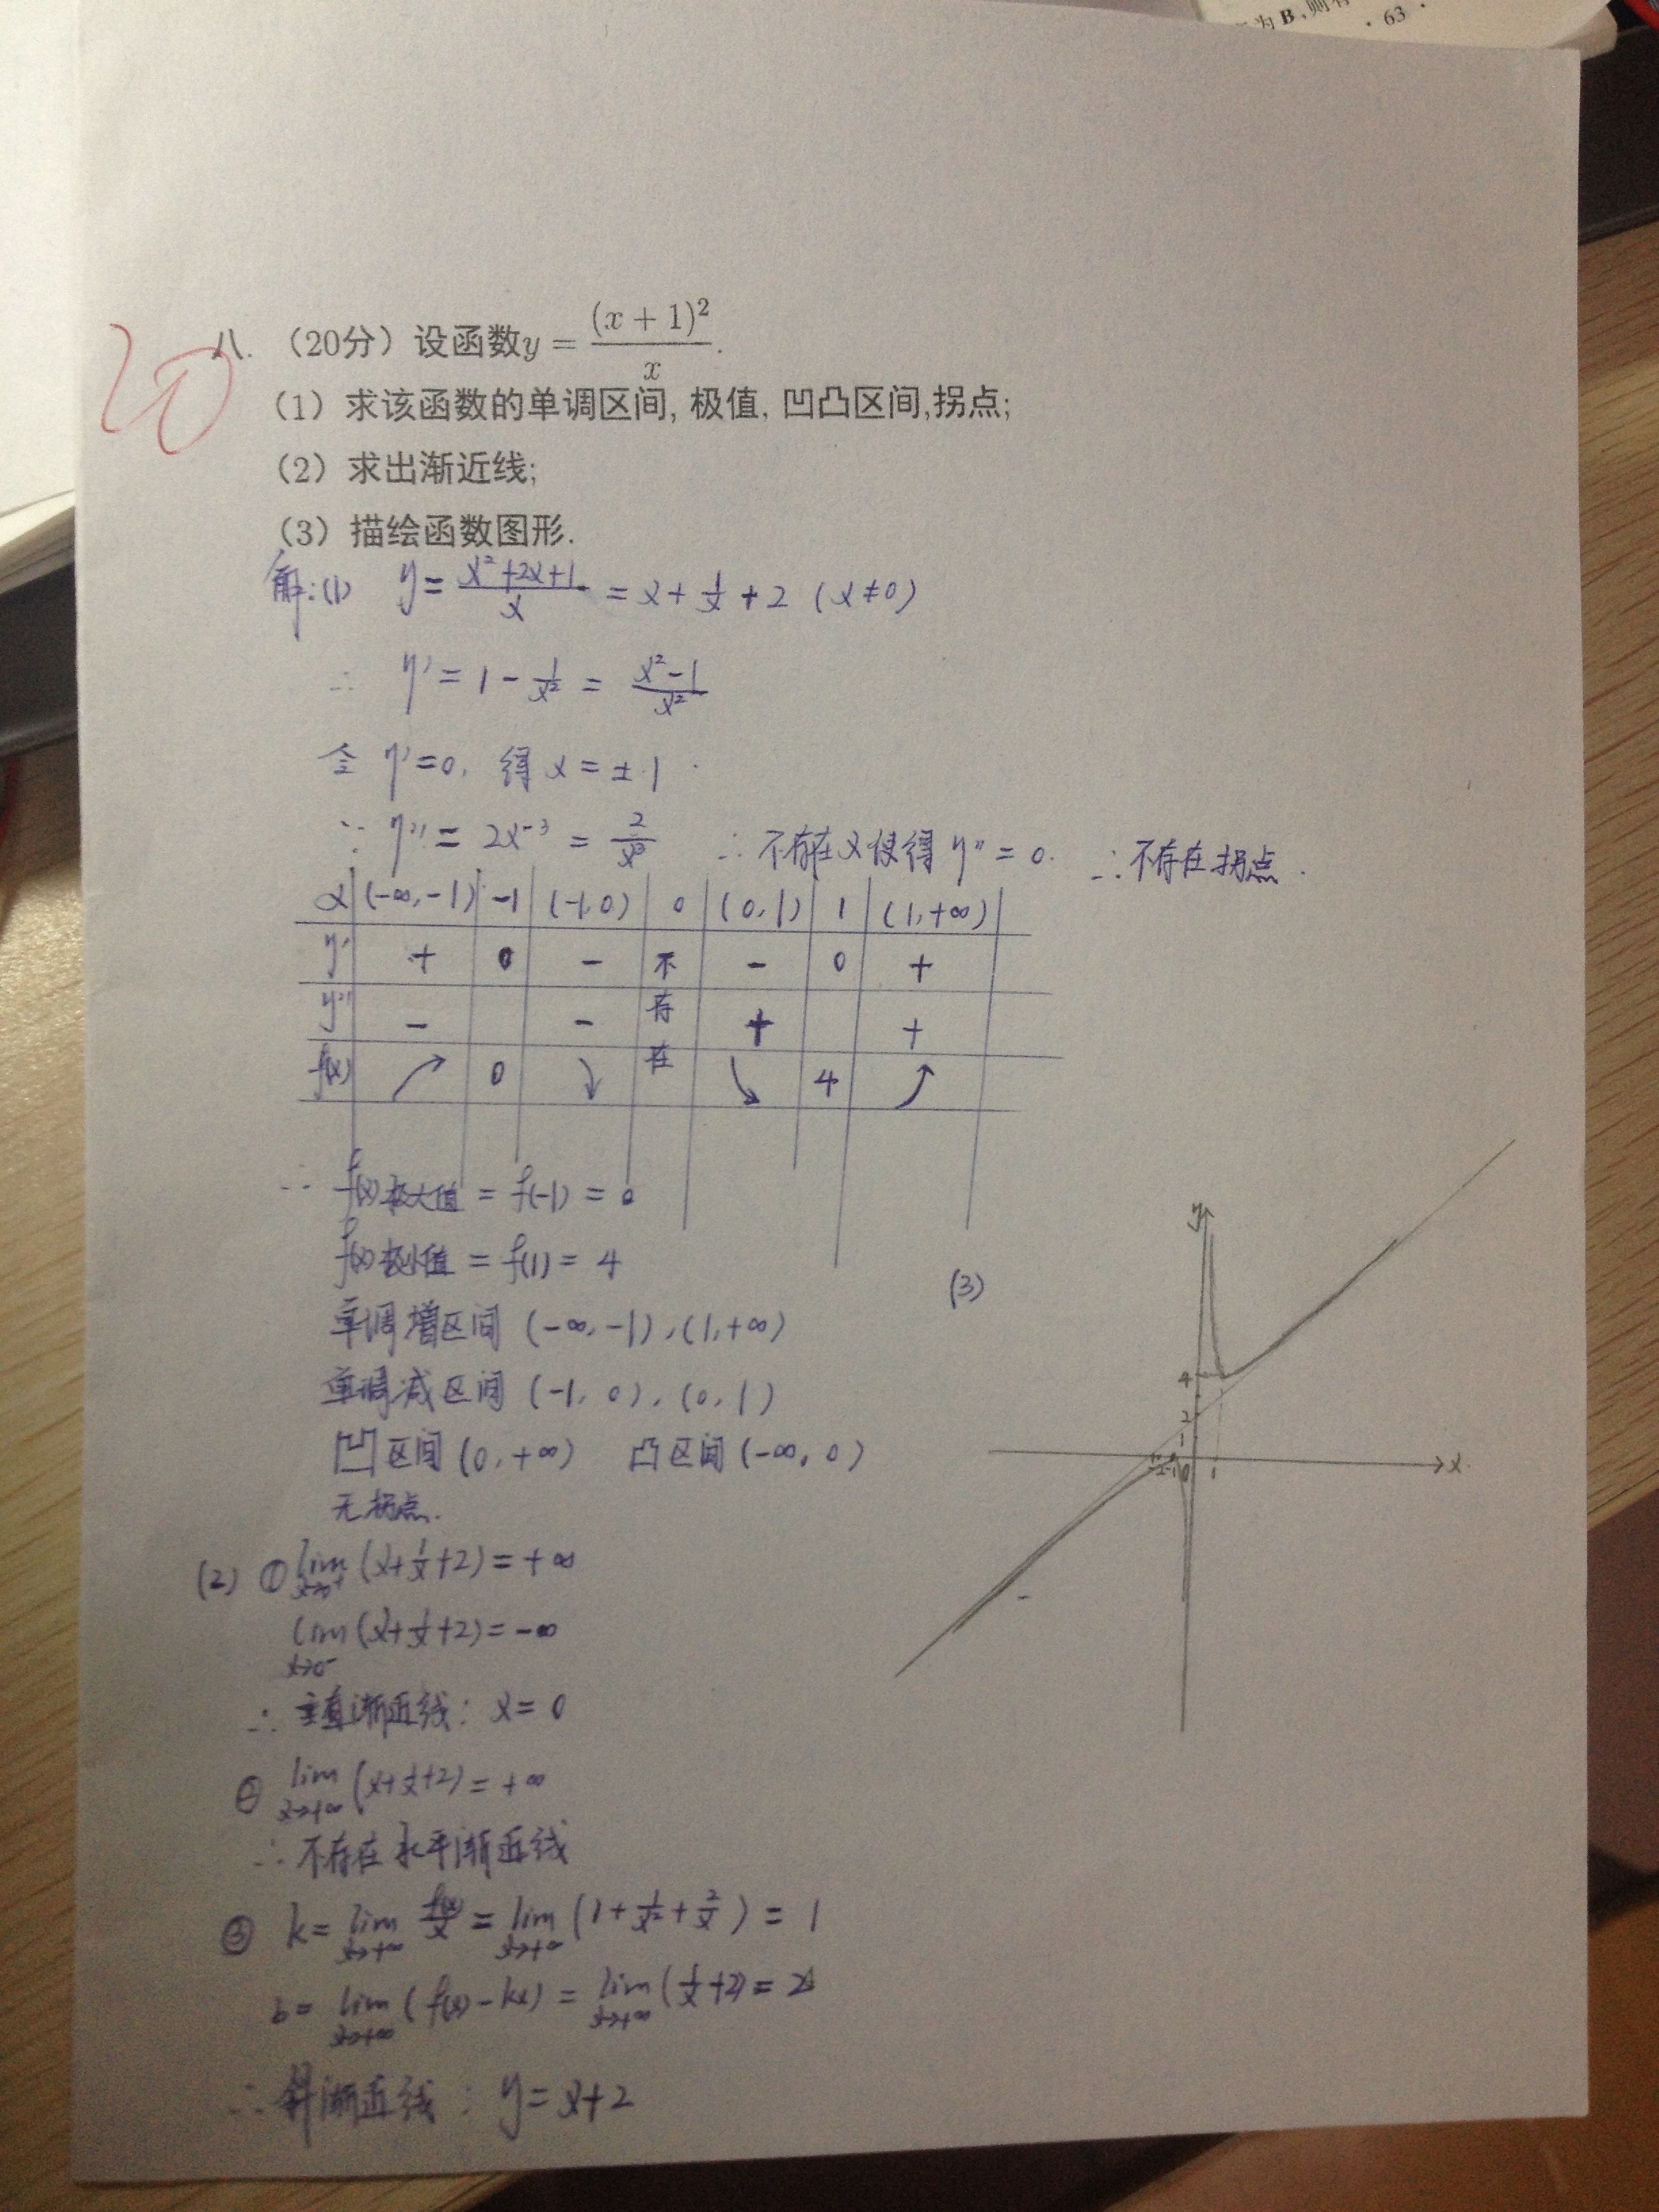 为B,则有
· 63 ·
20
八. （20分）设函数y = (x + 1)² / x .
（1）求该函数的单调区间, 极值, 凹凸区间,拐点;
（2）求出渐近线;
（3）描绘函数图形.
解:(1) y = (x²+2x+1)/x = x + 1/x + 2 (x≠0)
∴ y' = 1 - 1/x² = (x²-1)/x²
令 y'=0, 得 x = ±1
∵ y'' = 2x⁻³ = 2/x³ ∴不存在x使得 y''=0. ∴不存在拐点.
x (-∞,-1) -1 (-1,0) 0 (0,1) 1 (1,+∞)
y' + 0 - 不 - 0 +
y'' - -存 + +
f(x) ↗ 0 ↘ 在 ↘ 4 ↗
∴ f(x)极大值 = f(-1) = 0
f(x)极小值 = f(1) = 4
单调增区间 (-∞,-1),(1,+∞)
单调减区间 (-1,0),(0,1)
凹区间(0,+∞) 凸区间(-∞,0)
无拐点.
(2) ① lim x→0⁺ (x+1/x+2) = +∞
lim x→0⁻ (x+1/x+2) = -∞
∴ 垂直渐近线: x = 0
② lim x→+∞ (x+1/x+2) = +∞
∴ 不存在水平渐近线
③ k = lim x→+∞ f(x)/x = lim x→+∞ (1+1/x²+2/x) = 1
b = lim x→+∞ (f(x)-kx) = lim x→+∞ (1/x+2) = 2
∴ 斜渐近线: y = x+2
(3)
y
4
2
1
-2 -1 0 1 x